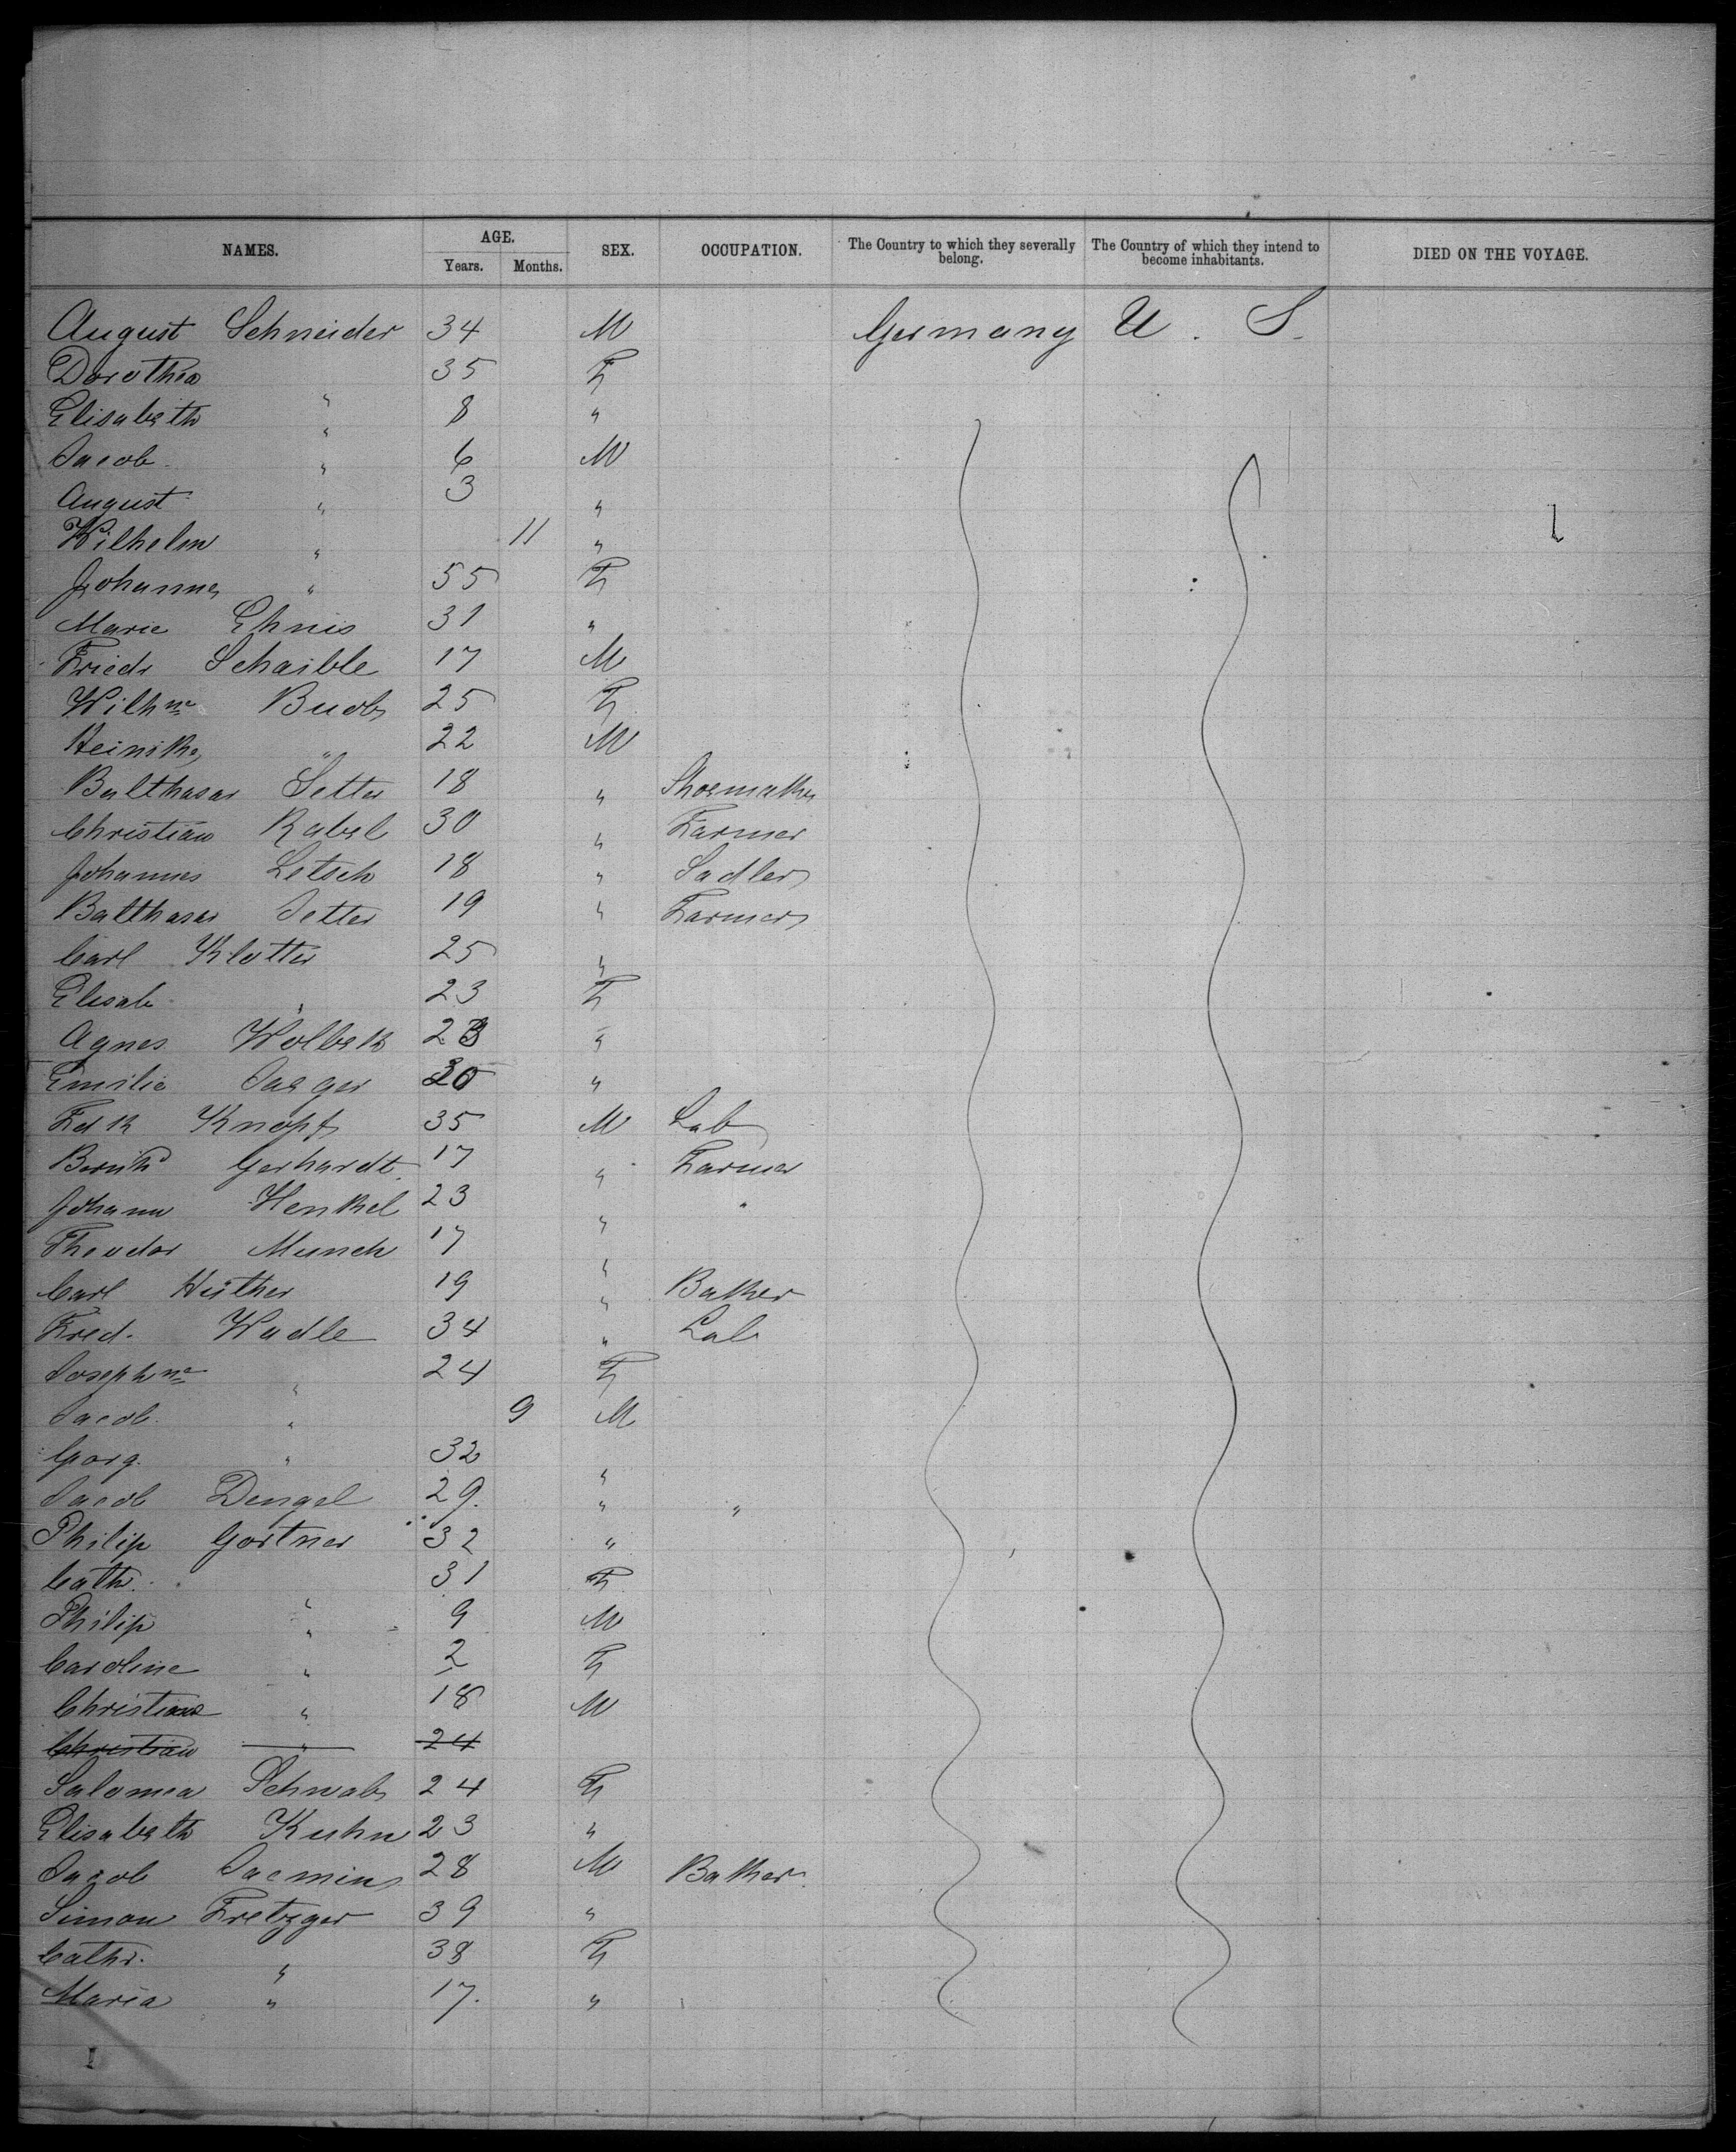 NAMES. AGE. SEX. OCCUPATION. The Country to which they severally belong. The Country of which they intend to become inhabitants. DIED ON THE VOYAGE.
Years. Months.
August Schneider 34 M Germany U. S.
Dorothea " 35 F
Elisabeth " 8 "
Jacob " 6 M
August " 3 "
Wilhelm " 11 "
Johannes " 55 F
Marie Ehnis 31 "
Friedr Schaible 17 M
Wilhne Buob 25 F
Heinike " 22 M
Balthasar Setter 18 " Shoemaker
Christian Rabel 30 " Farmer
Johannes Letsch 18 " Sadler
Balthasar Jetter 19 " Farmer
Carl Klotter 25 "
Elisab " 23 F
Agnes Wolbek 23 "
Emilie Jaeger 30 "
Fdk Knopf 35 M Lab
Bernhd Gerhardt 17 " Farmer
Johann Henkel 23 " "
Theodor Munch 17 "
Carl Hüther 19 " Baker
Fred. Wadle 34 " Lab
Josephne " 24 F
Jacob " 9 M
Georg. " 32 "
Jacob Dengel 29. " "
Philip Gortner 32 "
Cath. " 31 F
Philip " 9 M
Caroline " 2 F
Christian " 18 M
Christian " 24
Salomea Schwab 24 F
Elisabeth Kuhn 23 "
Jacob 28 M Baker
Simon Fretzger 39 "
Cathr. " 38 F
Maria " 17. "